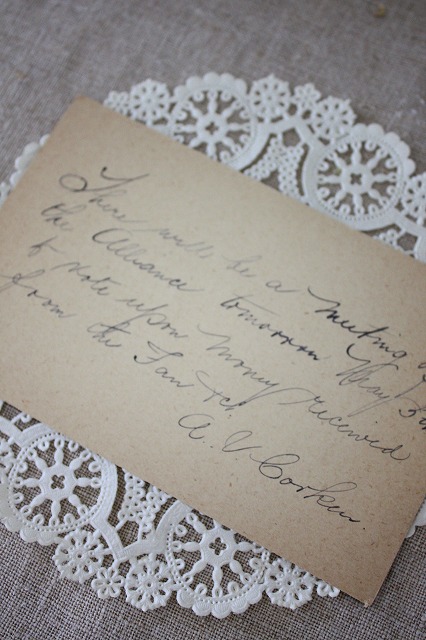 There will be a meeting of
the Alliance tomorrow May 5th
to vote upon money received
from the Tan
A. V. Corken.